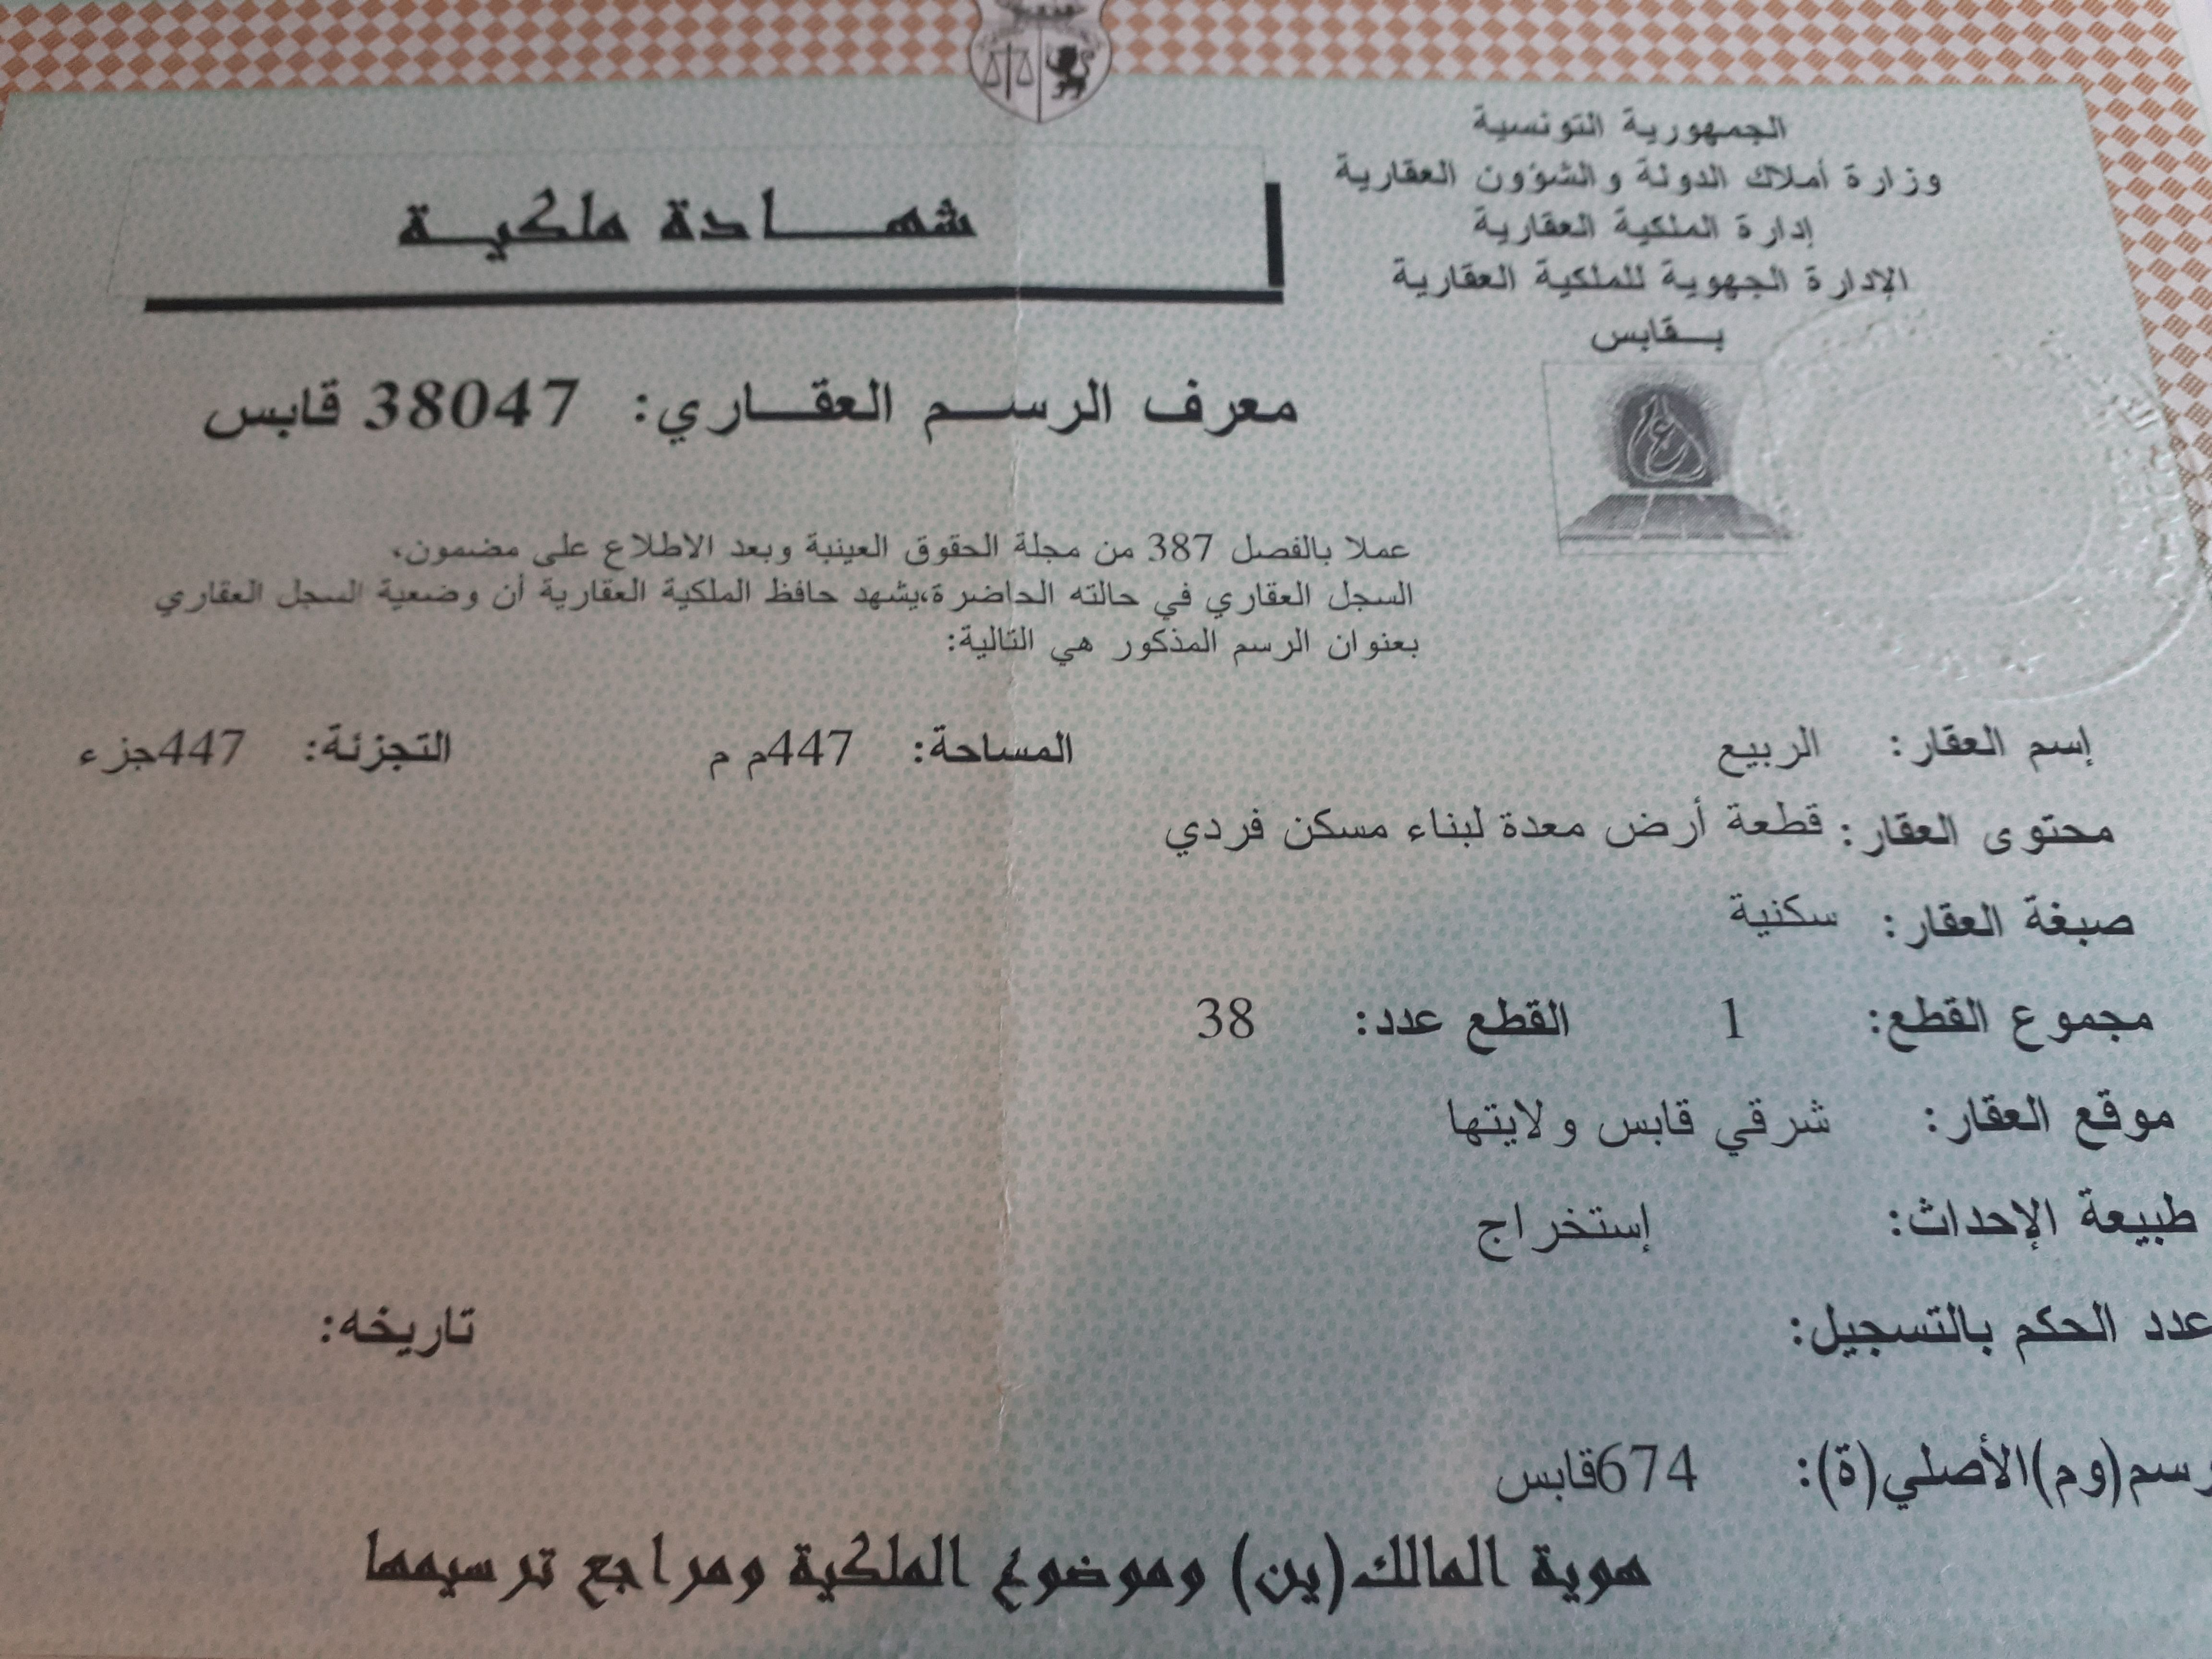 الجمهورية التونسية
وزارة أملاك الدولة والشؤون العقارية
إدارة الملكية العقارية
الإدارة الجهوية للملكية العقارية
بـقابس
شهـــادة ملكيـة
معرف الرسـم العقـاري: 38047 قابس
عملا بالفصل 387 من مجلة الحقوق العينية وبعد الاطلاع على مضمون،
السجل العقاري في حالته الحاضرة،يشهد حافظ الملكية العقارية أن وضعية السجل العقاري
بعنوان الرسم المذكور هي التالية:
إسم العقار: الربيع المساحة: 447م م التجزئة: 447جزء
محتوى العقار: قطعة أرض معدة لبناء مسكن فردي
صبغة العقار: سكنية
مجموع القطع: 1 القطع عدد: 38
موقع العقار: شرقي قابس ولايتها
طبيعة الإحداث: إستخراج
عدد الحكم بالتسجيل: تاريخه:
رسم(وم)الأصلي(ة): 674قابس
هوية المالك(ين) وموضوع الملكية ومراجع ترسيمها